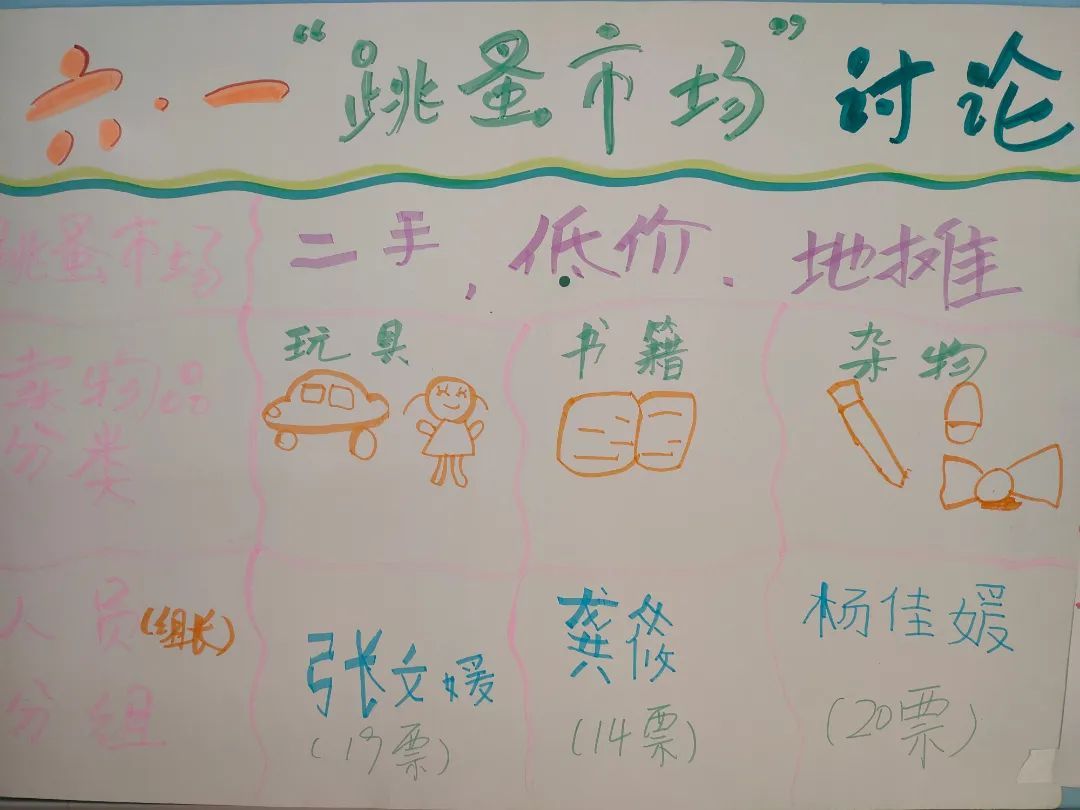 六·一“跳蚤市场”讨论
跳蚤市场
二手，低价．地摊
卖物品分类
玩具
书籍
杂物
人员(组长)
分组
张文媛
龚
杨佳媛
(19票)
(14票)
(20票)